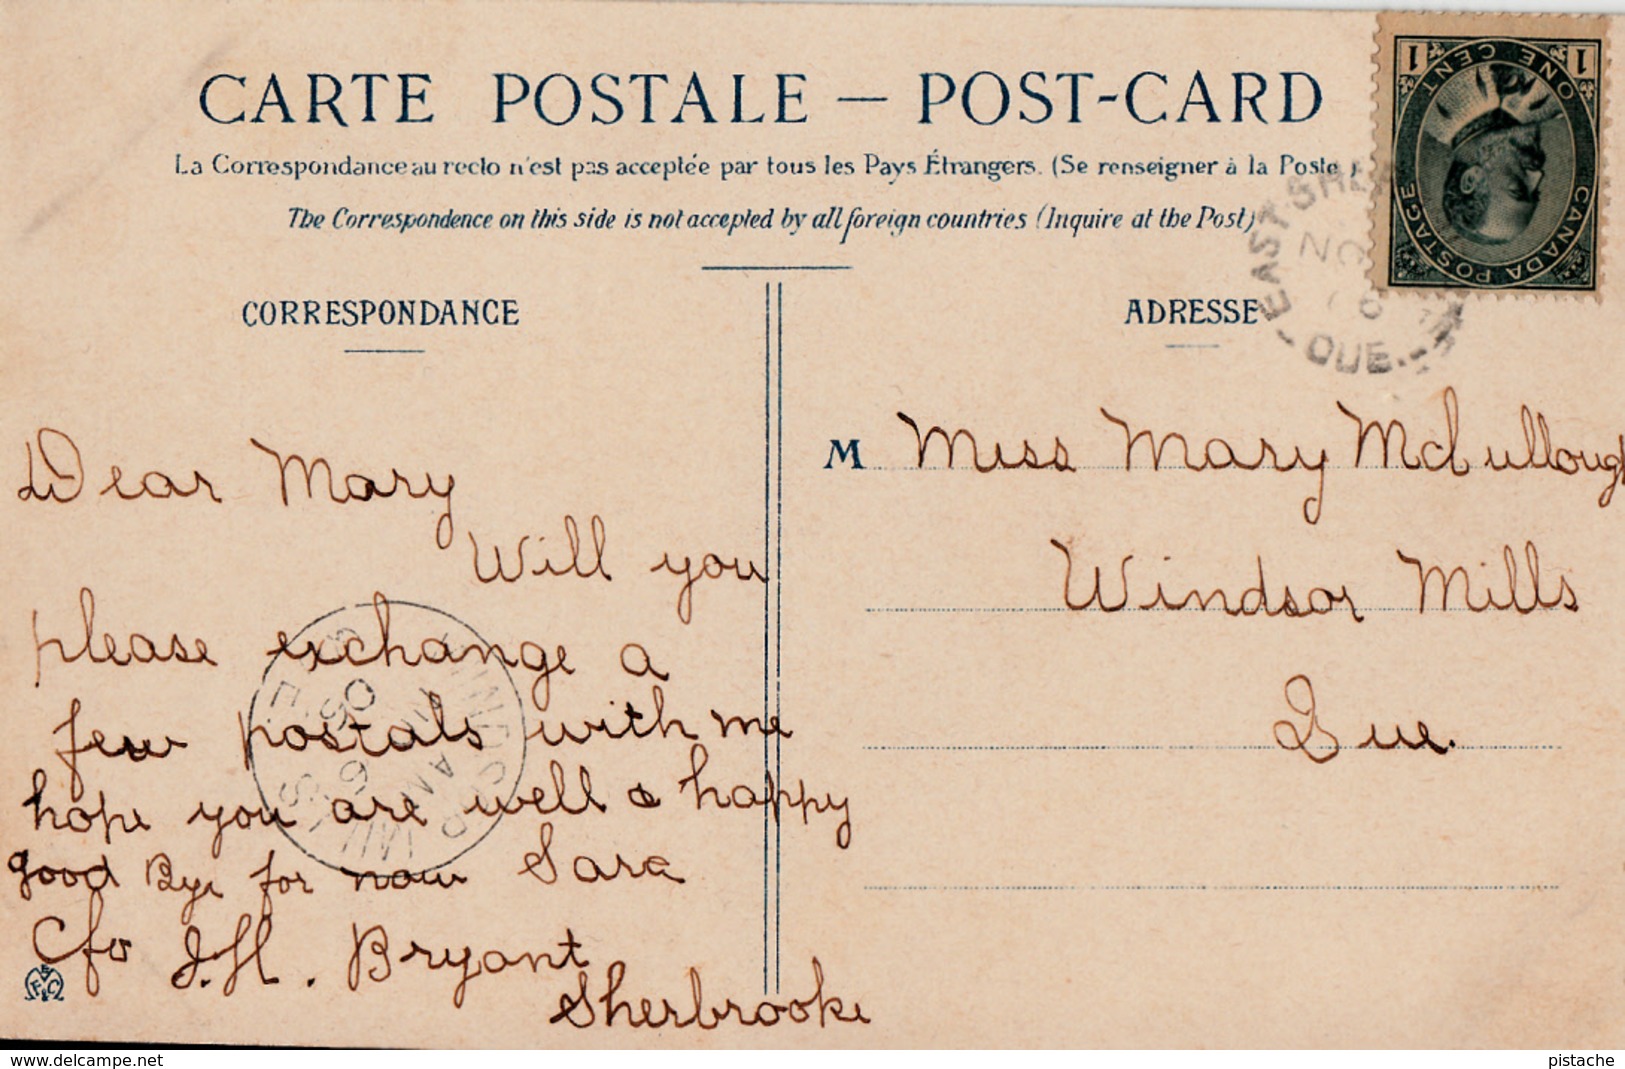 CARTE POSTALE — POST-CARD
La Correspondance au recto n'est pas acceptée par tous les Pays Étrangers. (Se renseigner à la Poste)
The Correspondence on this side is not accepted by all foreign countries (Inquire at the Post)
CORRESPONDANCE
Dear Mary
Will you
please exchange a
few postals with me
hope you are well & happy
good Bye for now Sara
C/o J.H. Bryant
Sherbrooke
ADRESSE
M Miss Mary McCullough
Windsor Mills
Que.
1 ONE CENT 1
CANADA POSTAGE
EAST SHE
NO
6
QUE.
WINDSOR MILLS
AM
6
08
delcampe.net
pistache